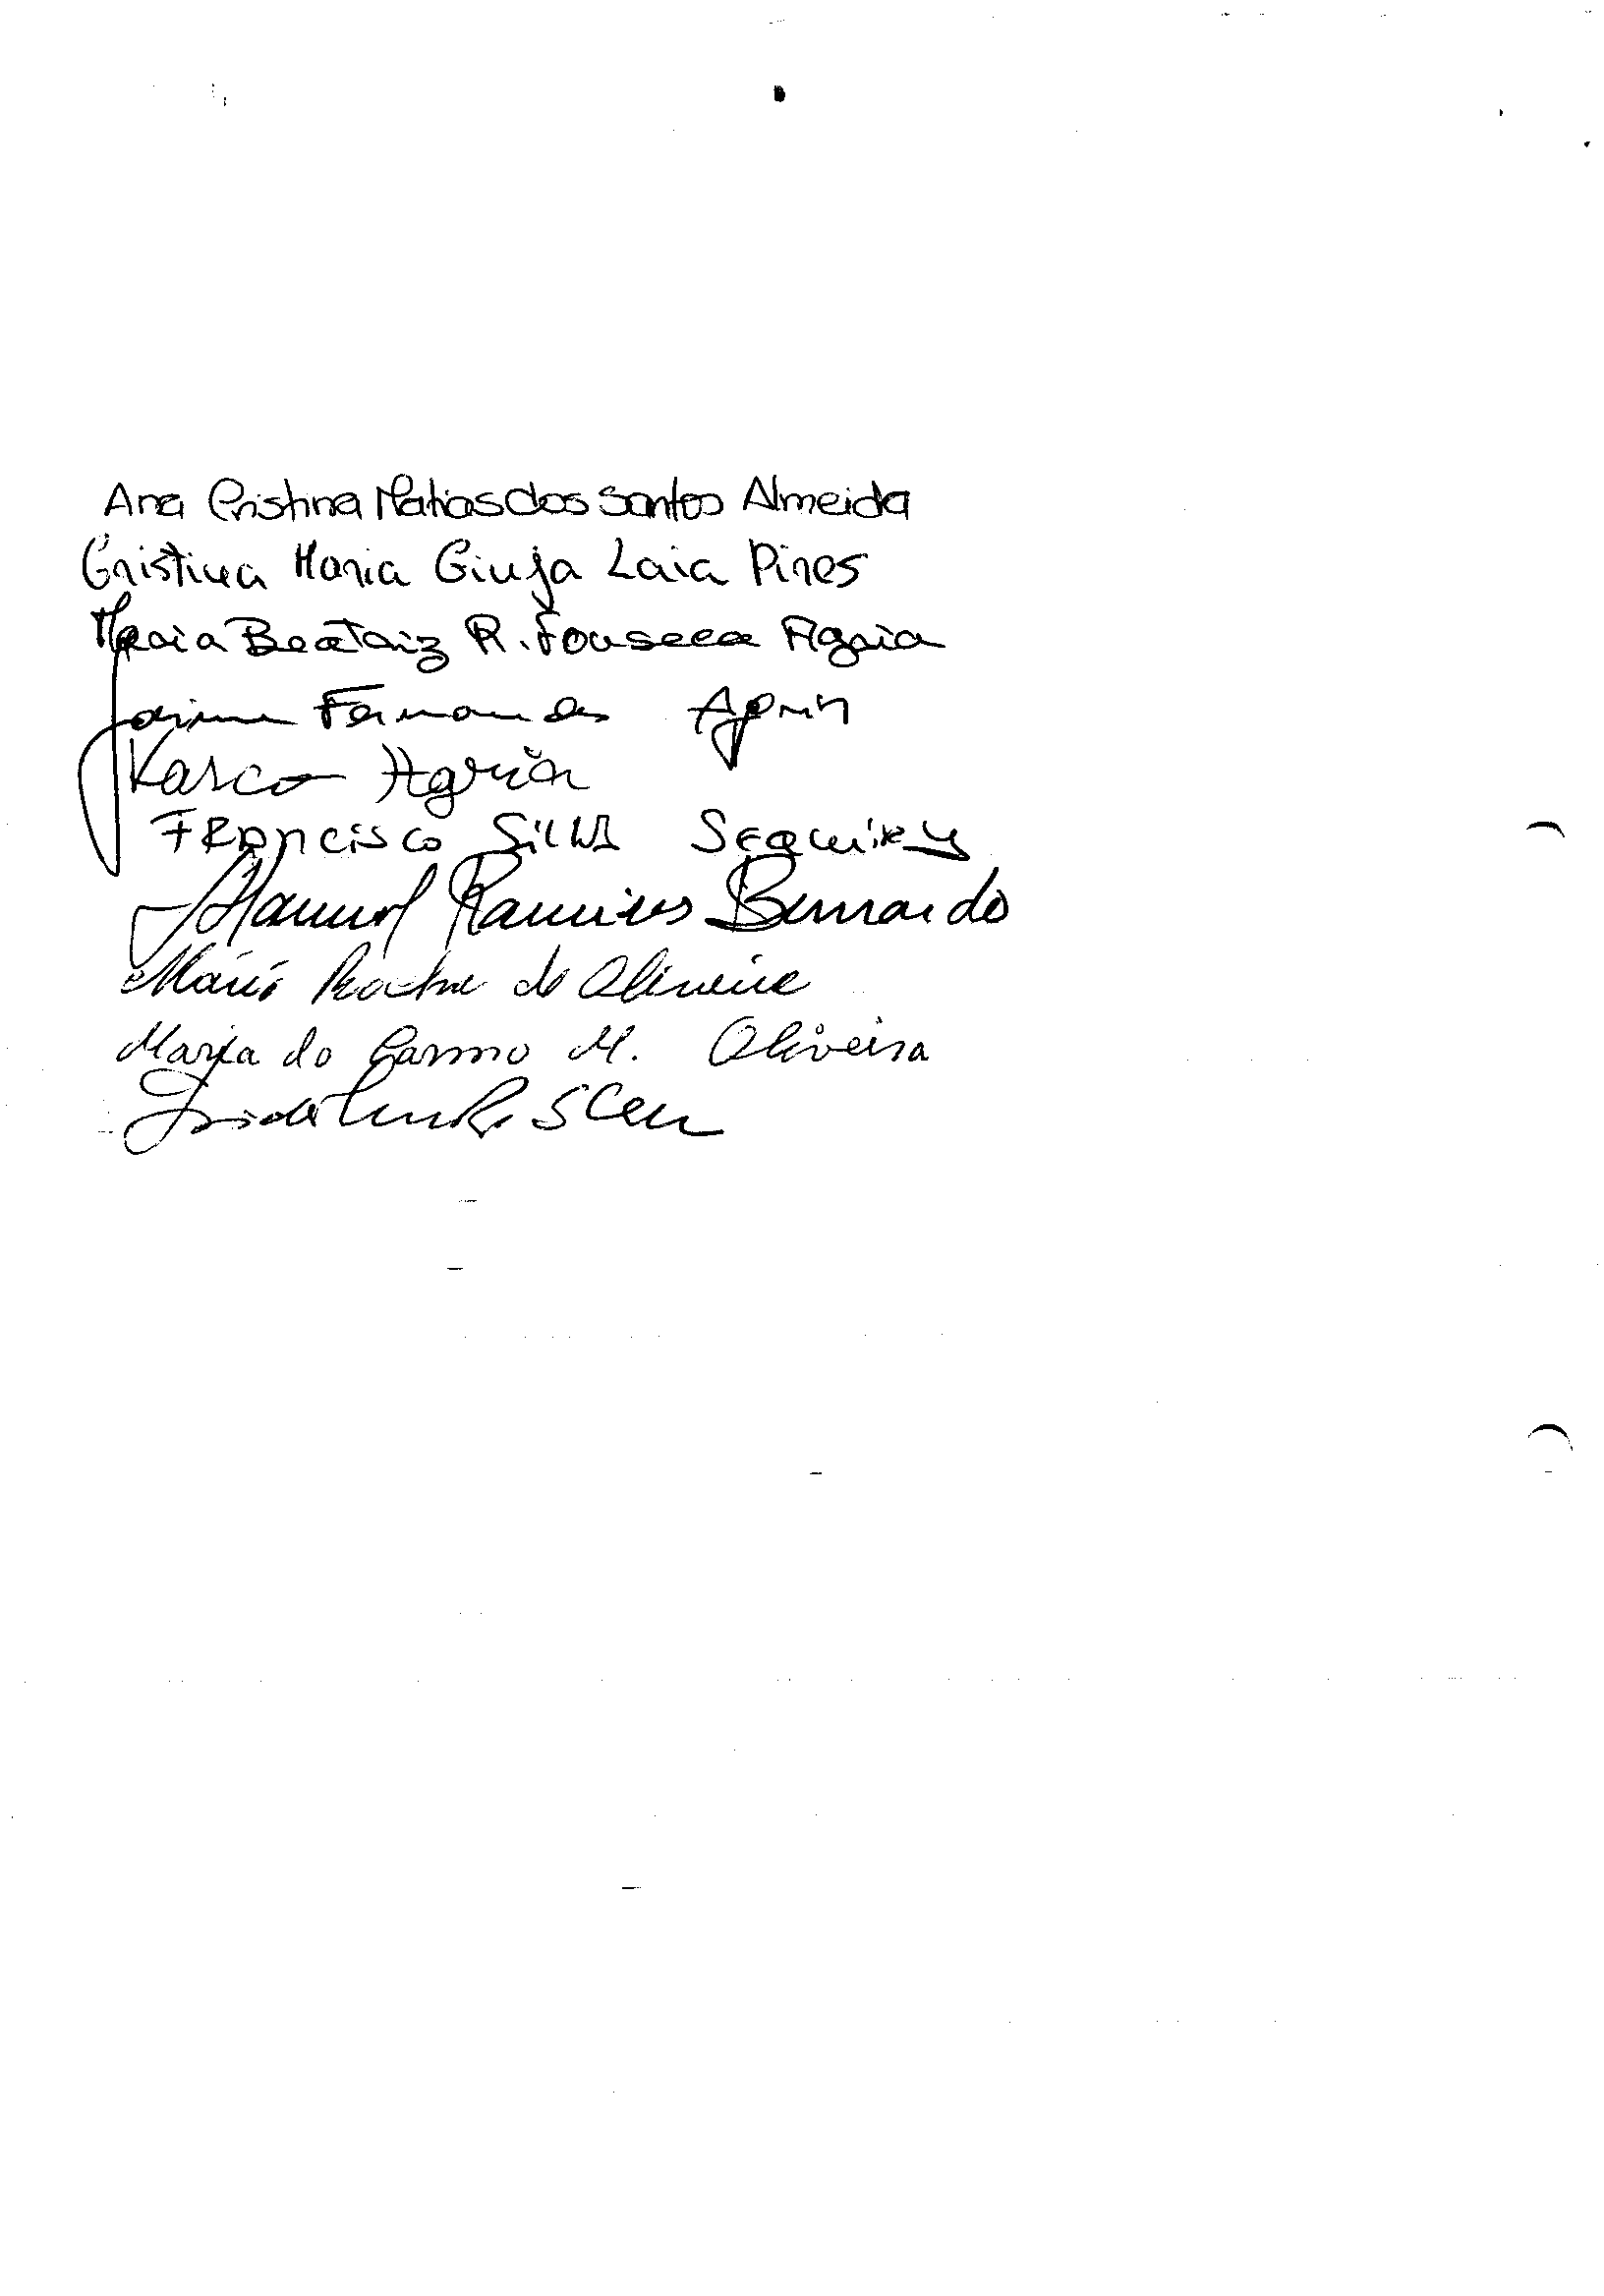 Ana Cristina Matias dos Santos Almeida
Cristina Maria Ginja Laia Pires
Maria Beatriz R. Fonseca Agria
Jaime Fernandes Agria
Vasco Agria
Francisco Silva Sequeira
Manuel Ramires Bernardo
Mário Rocha de Oliveira
Maria do Carmo M. Oliveira